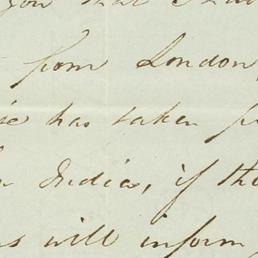 you that I ha
from London
has taken
India, if th
will inform